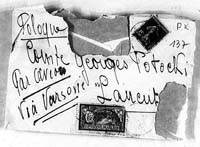 Pologne
Comte Georges Potocki
Par avion
Via Varsovie "Lancut"
PK
137